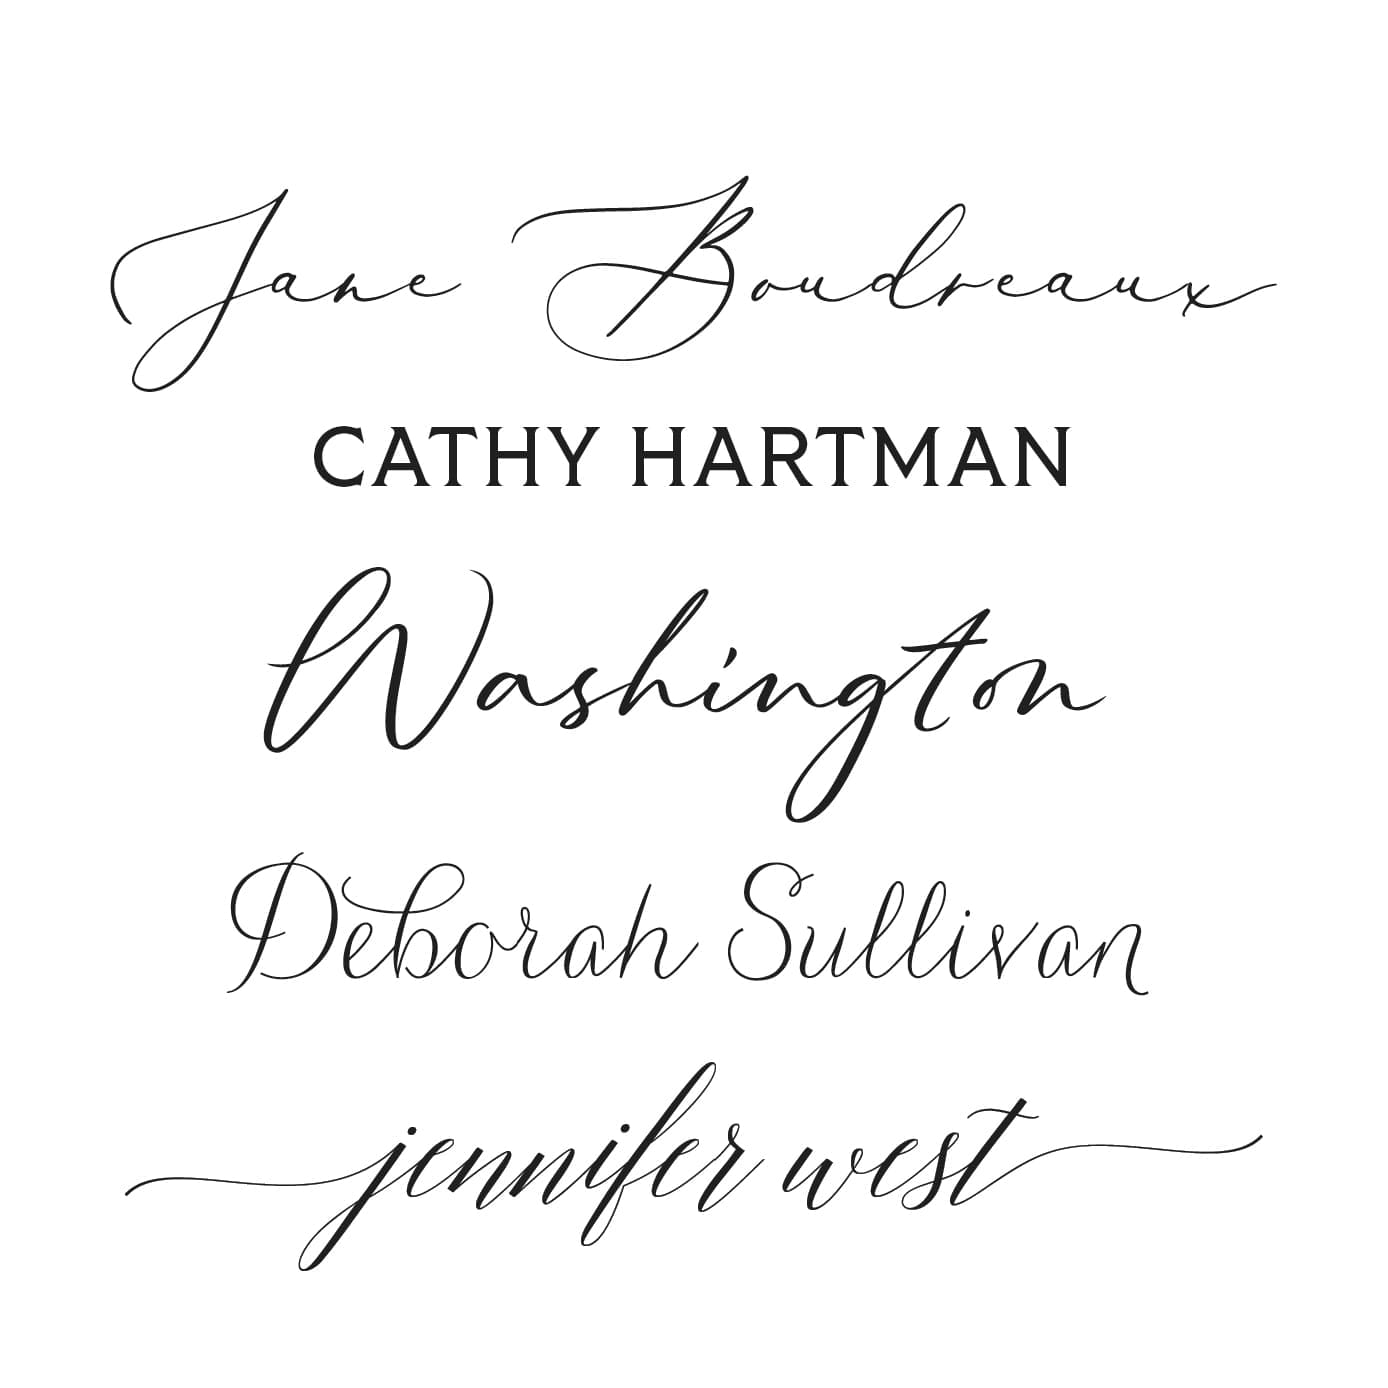 Jane Boudreaux
CATHY HARTMAN
Washington
Deborah Sullivan
jennifer west